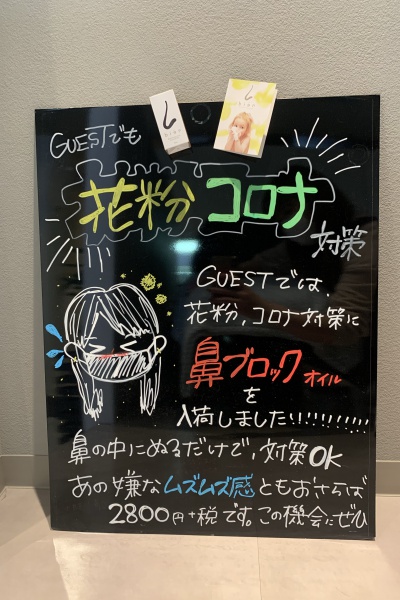 GUESTでも
花粉 コロナ
対策
GUESTでは、
花粉,コロナ対策に
鼻ブロック オイル
を
入荷しました!!!!!!!!!!
鼻の中にぬるだけで,対策OK
あの嫌なムズムズ感ともおさらば
2800円+税です。この機会にぜひ